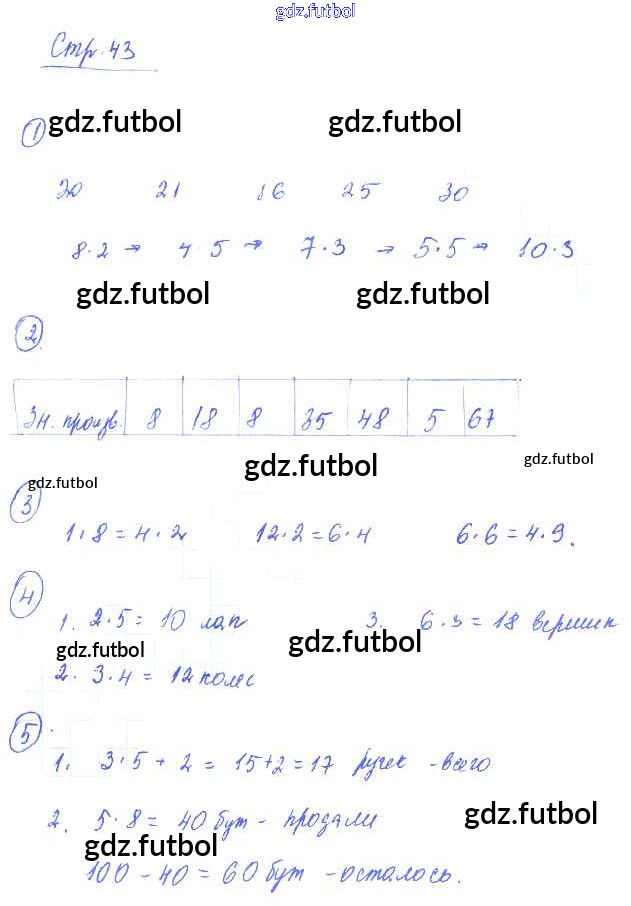 gdz.futbol
Стр. 43
gdz.futbol gdz.futbol
1
20 21 16 25 30
8·2 → 4·5 → 7·3 → 5·5 → 10·3
gdz.futbol gdz.futbol
2.
Зн. произв. 8 18 8 35 48 5 67
gdz.futbol gdz.futbol
gdz.futbol
3
1·8 = 4·2 12·2 = 6·4 6·6 = 4·9.
4
1. 2·5 = 10 лап 3. 6·3 = 18 вершин
gdz.futbol gdz.futbol
2. 3·4 = 12 колес
5.
1. 3·5 + 2 = 15+2 = 17 ручек - всего
2. 5·8 = 40 бут - продали
gdz.futbol gdz.futbol
100 - 40 = 60 бут - осталось.